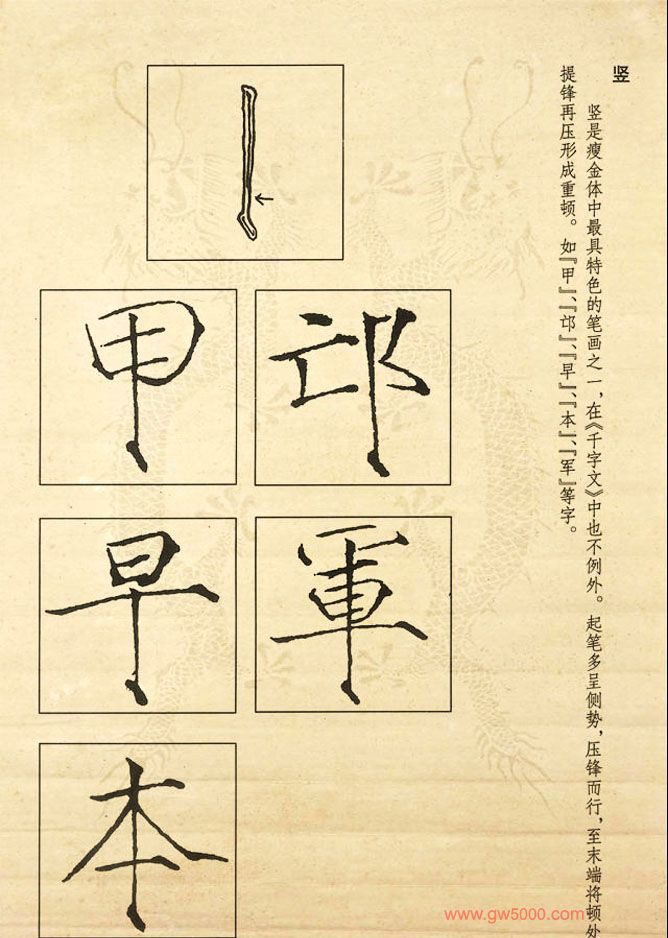 竖
竖是瘦金体中最具特色的笔画之一，在《千字文》中也不例外。起笔多呈侧势，压锋而行，至末端将顿处
提锋再压形成重顿。如『甲』、『邙』、『早』、『本』、『军』等字。
邙
甲
軍
早
本
www.gw5000.com